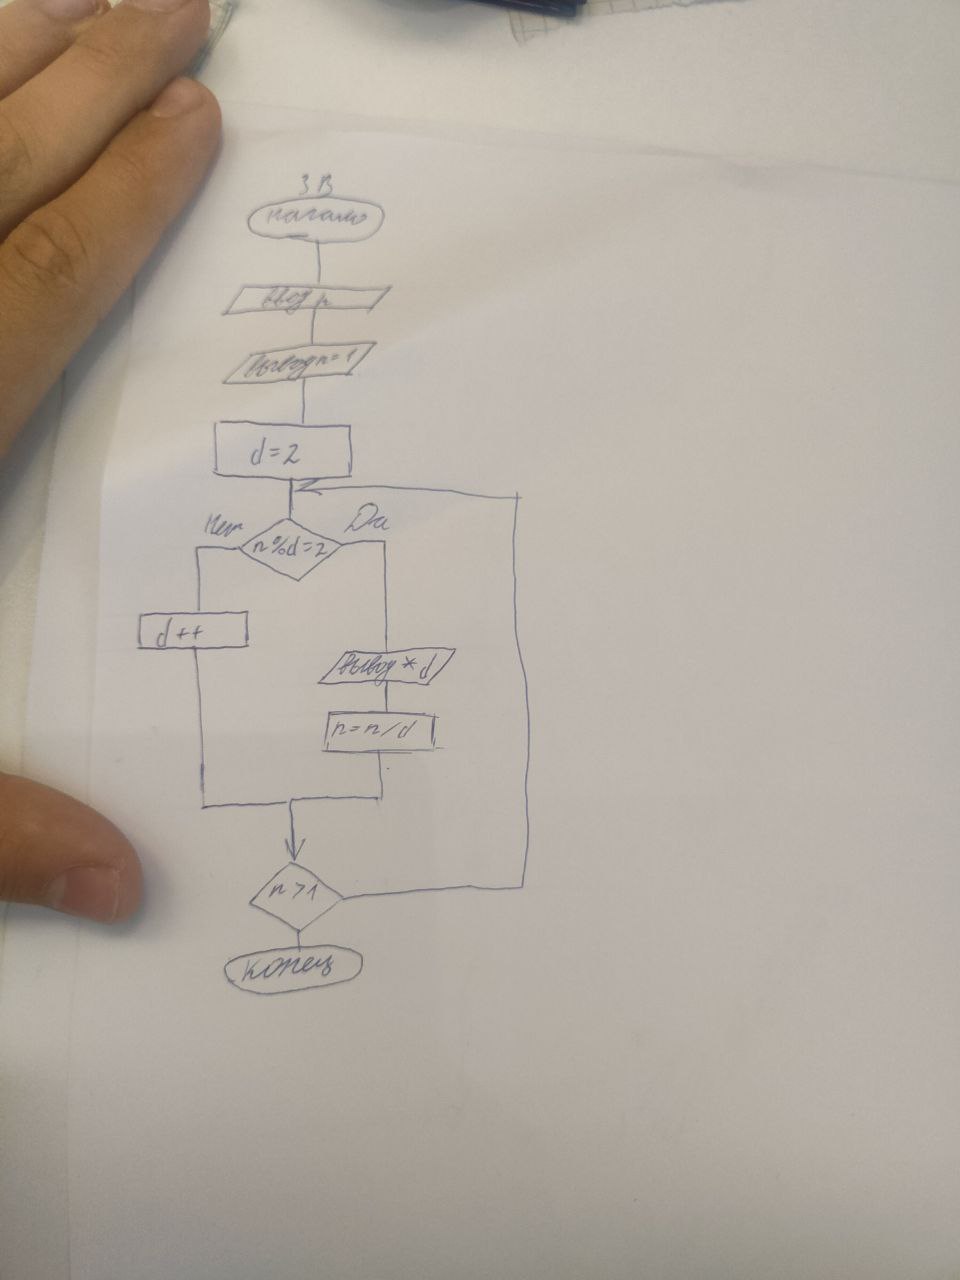 3 В
начало
ввод n
вывод n=1
d=2
Нет Да
n%d=2
d++
вывод *d
n=n/d
n>1
конец